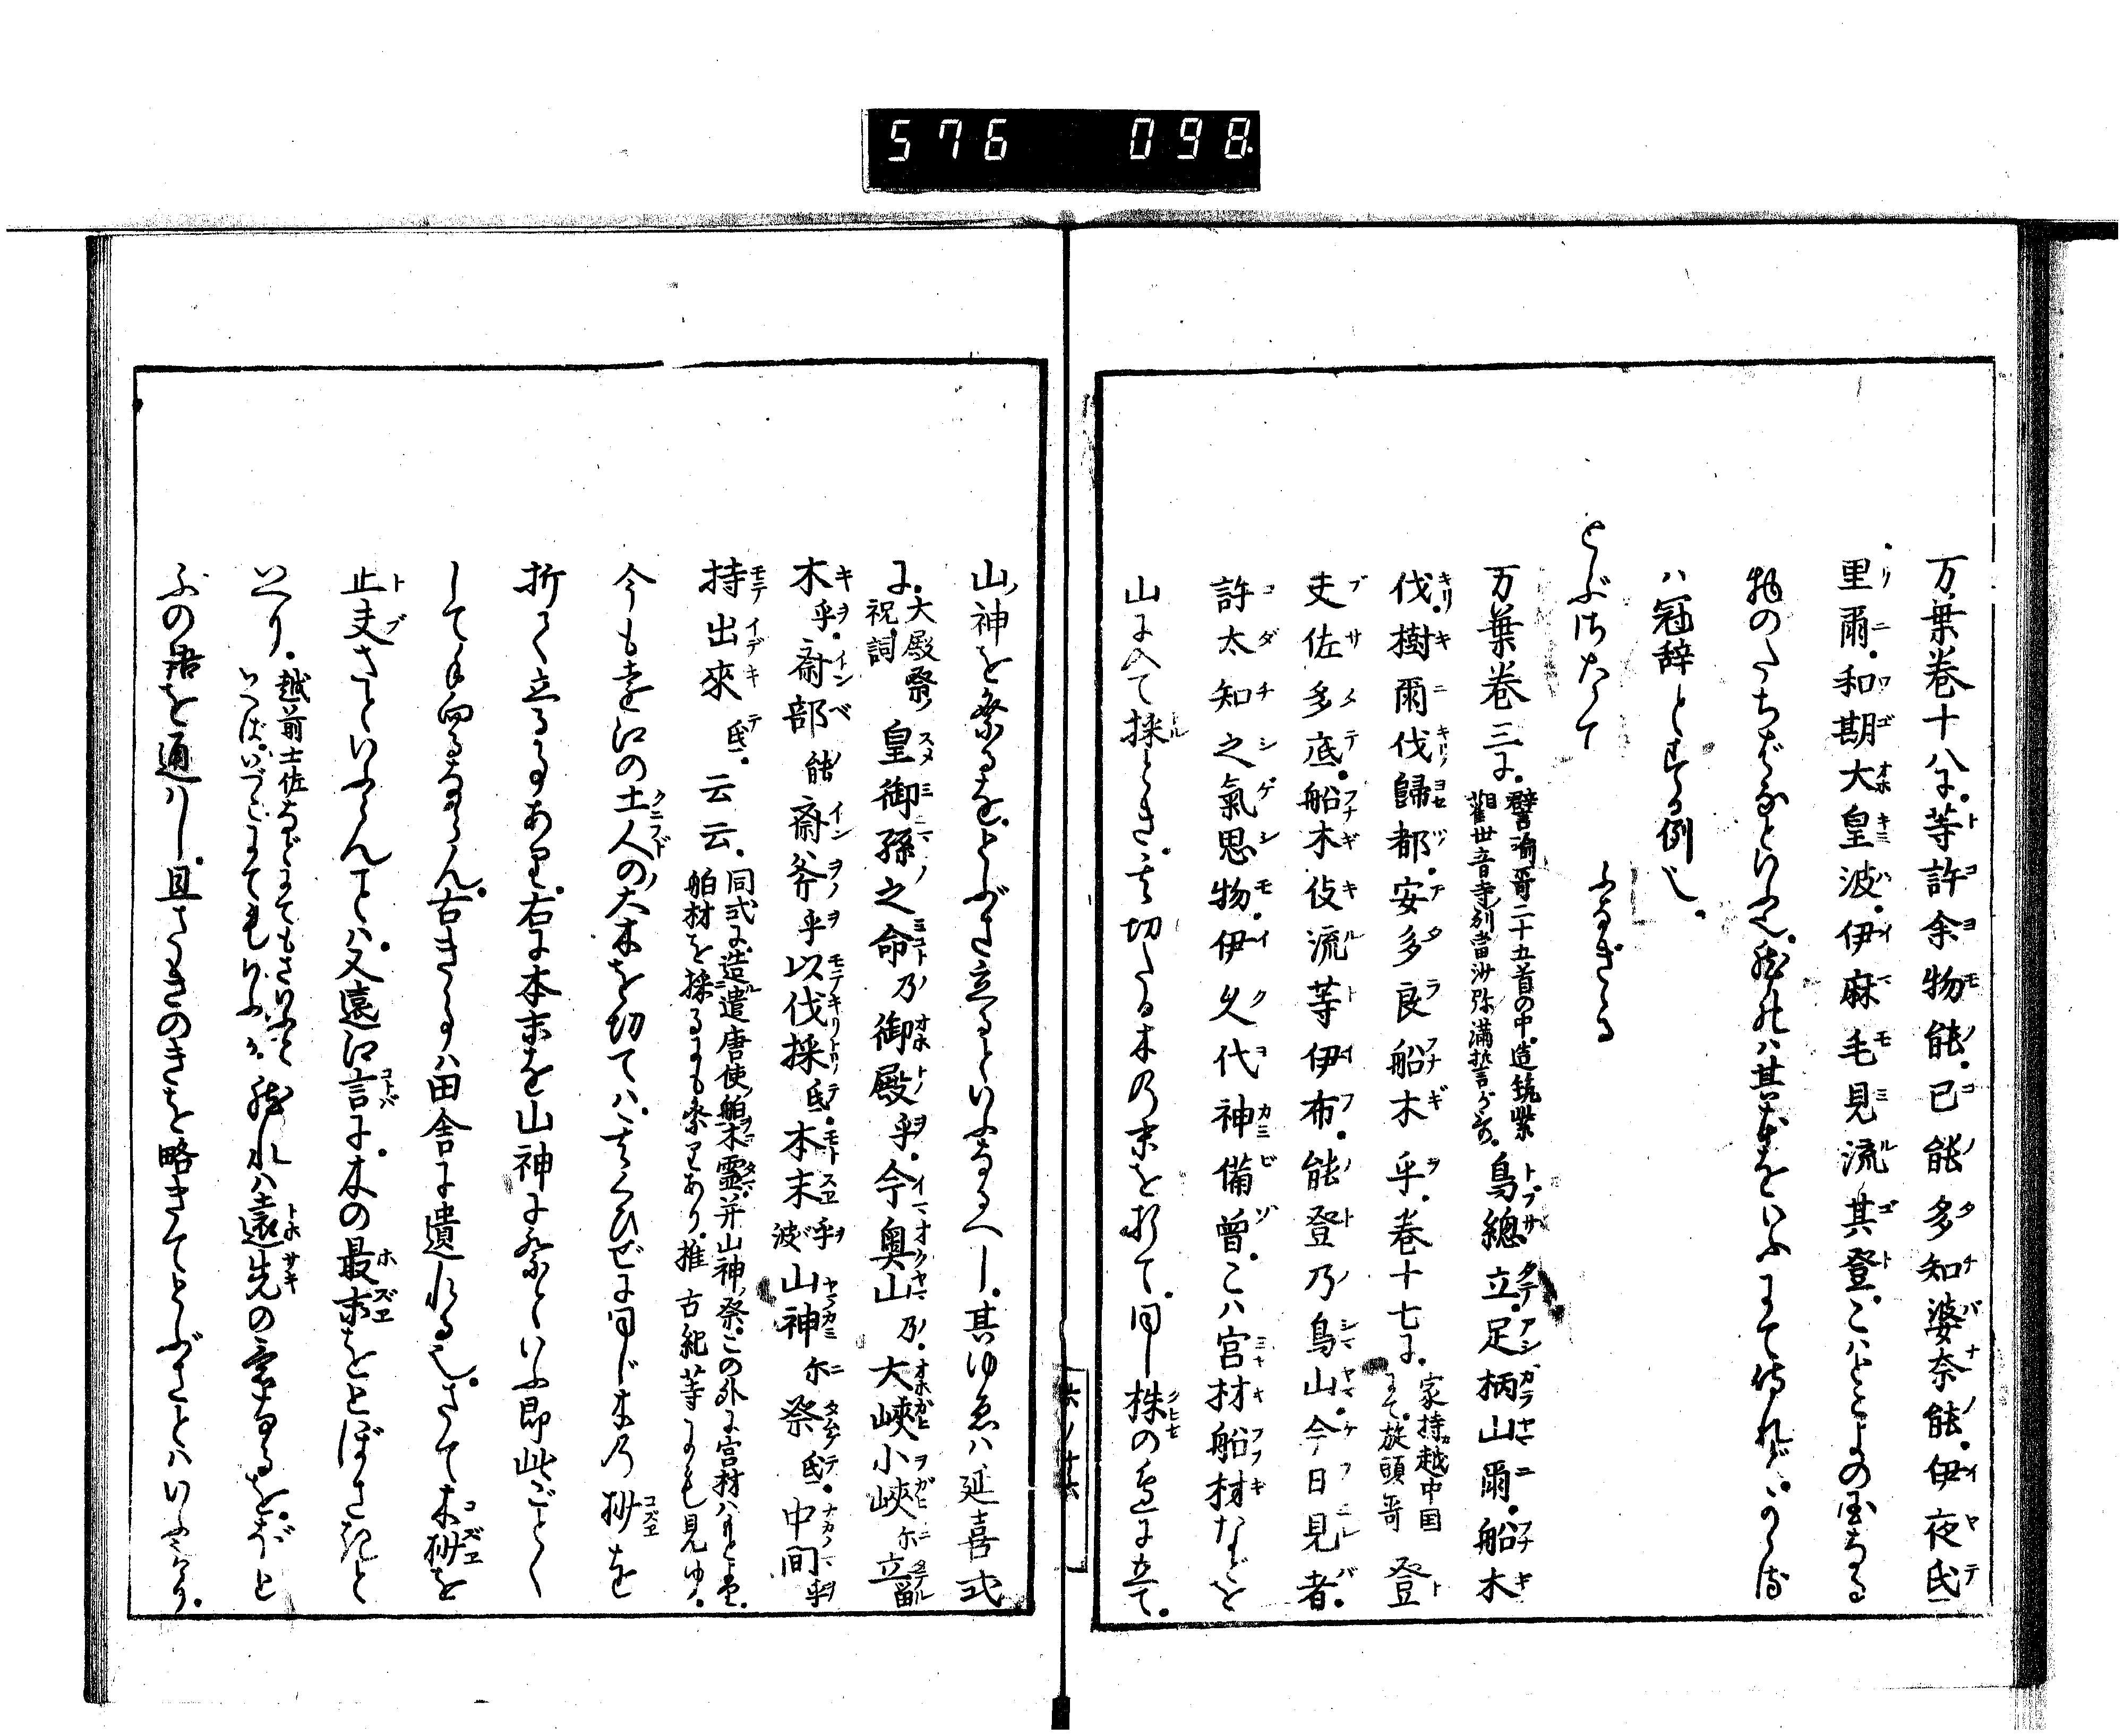 576 098
万葉巻十八に。等許余物能。已能多知婆奈能。伊夜氐
里爾。和期大皇波。伊麻毛見流其登。こハとこよの国なる
物のたちばなといふ也。然れハ其本をいふまで侍れど。
ハ冠辞とする例也。
とぶさたて ふなぎきる
万葉巻三に。譬喩哥二十五首の中。造筑紫観世音寺別当沙弥満誓が哥。鳥總立。足柄山爾。船木
伐。樹爾伐歸都。安多良船木乎。巻十七に。家持越中国にて。旋頭哥 登
夫佐多底。船木伎流等伊布。能登乃島山。今日見者。
許太知之氣思物。伊久代神備曾。こハ宮材船材などを
山に入て採とき。其切たる木の末を折て。同じ株の邊に立て。
山神を祭るを。とぶさ立るといふなるべし。其ゆゑハ延喜式
に。大殿祭祝詞 皇御孫之命乃御殿乎。今奥山乃。大峡小峡尓立留
木乎。斎部能斎斧乎以伐採氐。本末波山神尓祭氐。中間乎
持出來氐。云云。同式に。造遣唐使舶木霊并山神祭。この外に宮材ハもとより。舶材を採るにも祭りあり。推古紀等にも見ゆ。
今も遠江の土人の大木を切てハ。其くひぜに同じ木乃梢を
折て立る事あり。右に本末を山神に祭るといふ即此ごとく
して手向るならん。古き事ハ田舎に遺れる也。さて木梢を
止夫さといふらんことハ。又遠江言に。木の最末をとぼさきと
いへり。越前土佐などにてもさいふと いへば。いづこにてもいふか 然れハ遠先の意なるを。ぼと
ぶの語を通ハし。且さきのきを略きてとぶさとハいふなり。